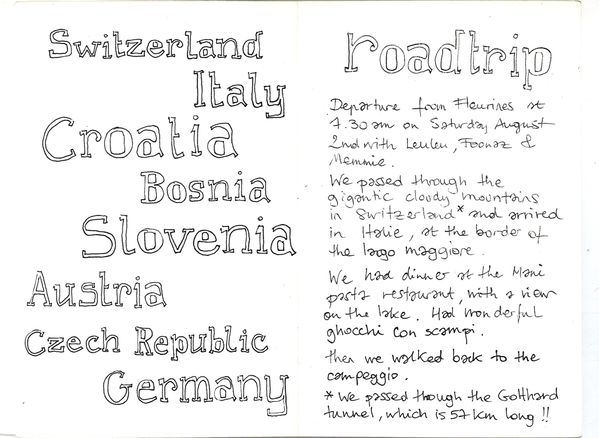 Switzerland
Italy
Croatia
Bosnia
Slovenia
Austria
Czech Republic
Germany
roadtrip
Departure from Fleurines at
7.30 am on Saturday August
2nd with Leuleu, Foonaz &
Memmie.
We passed through the
gigantic cloudy mountains
in Switzerland* and arrived
in Italie, at the border of
the lago maggiore.
We had dinner at the Mani
pasta restaurant, with a view
on the lake. Had wonderful
ghocchi con scampi.
then we walked back to the
campeggio.
* We passed through the Gotthard
tunnel, which is 57 km long !!